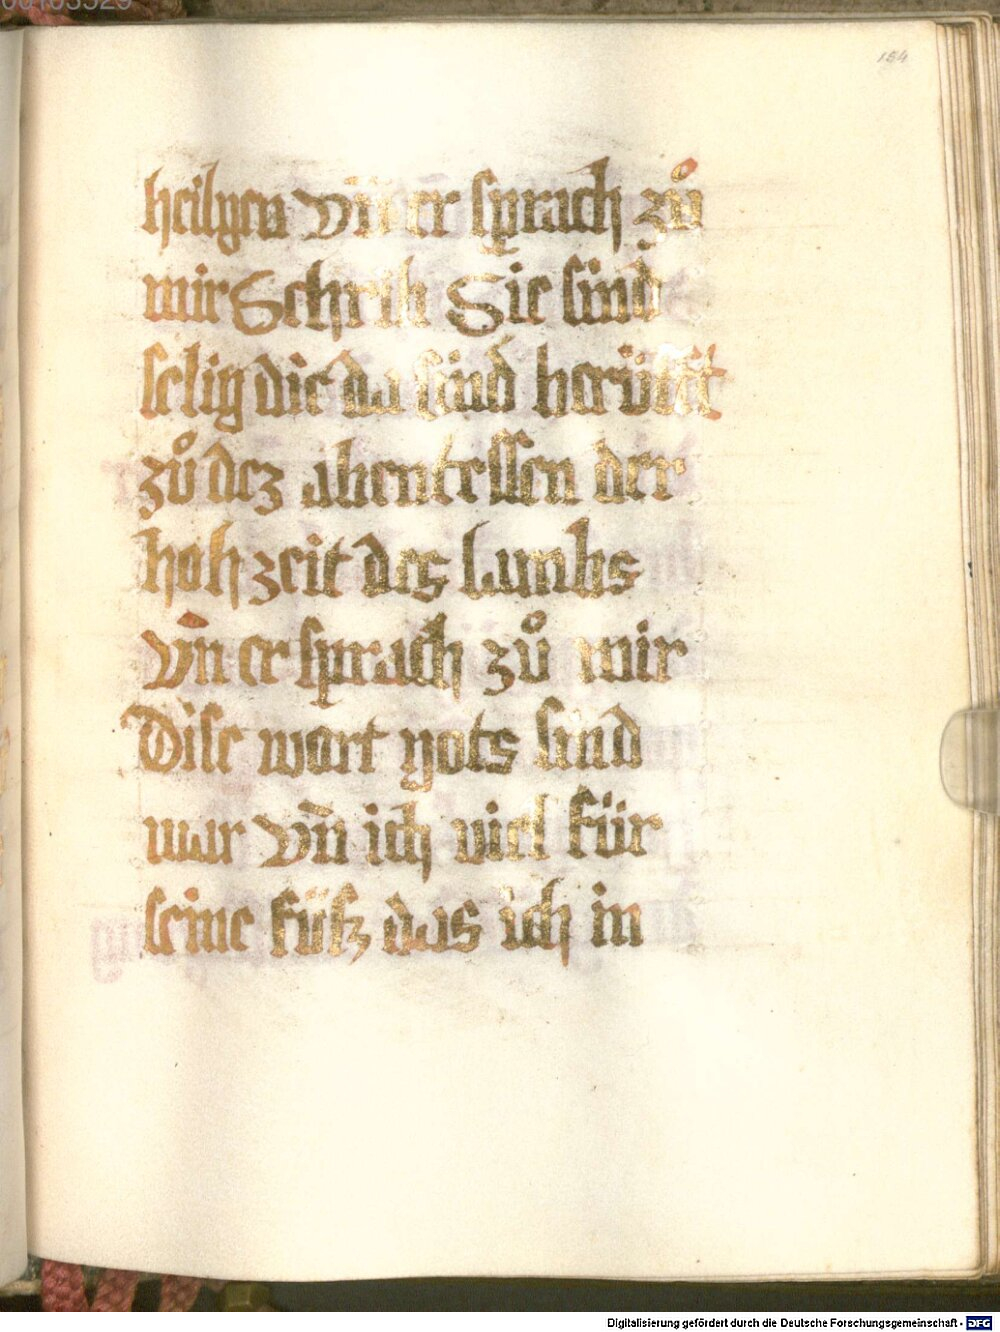 154
heilgen vn̄ er sprach zů
mir Schrib Sie sind
selig die da sind berüfft
zů dez abentessen der
hohzeit des Lambs
vn̄ er sprach zů mir
Dise wort gots sind
war vn̄ ich viel für
seine füsz das ich in
Digitalisierung gefördert durch die Deutsche Forschungsgemeinschaft - DFG